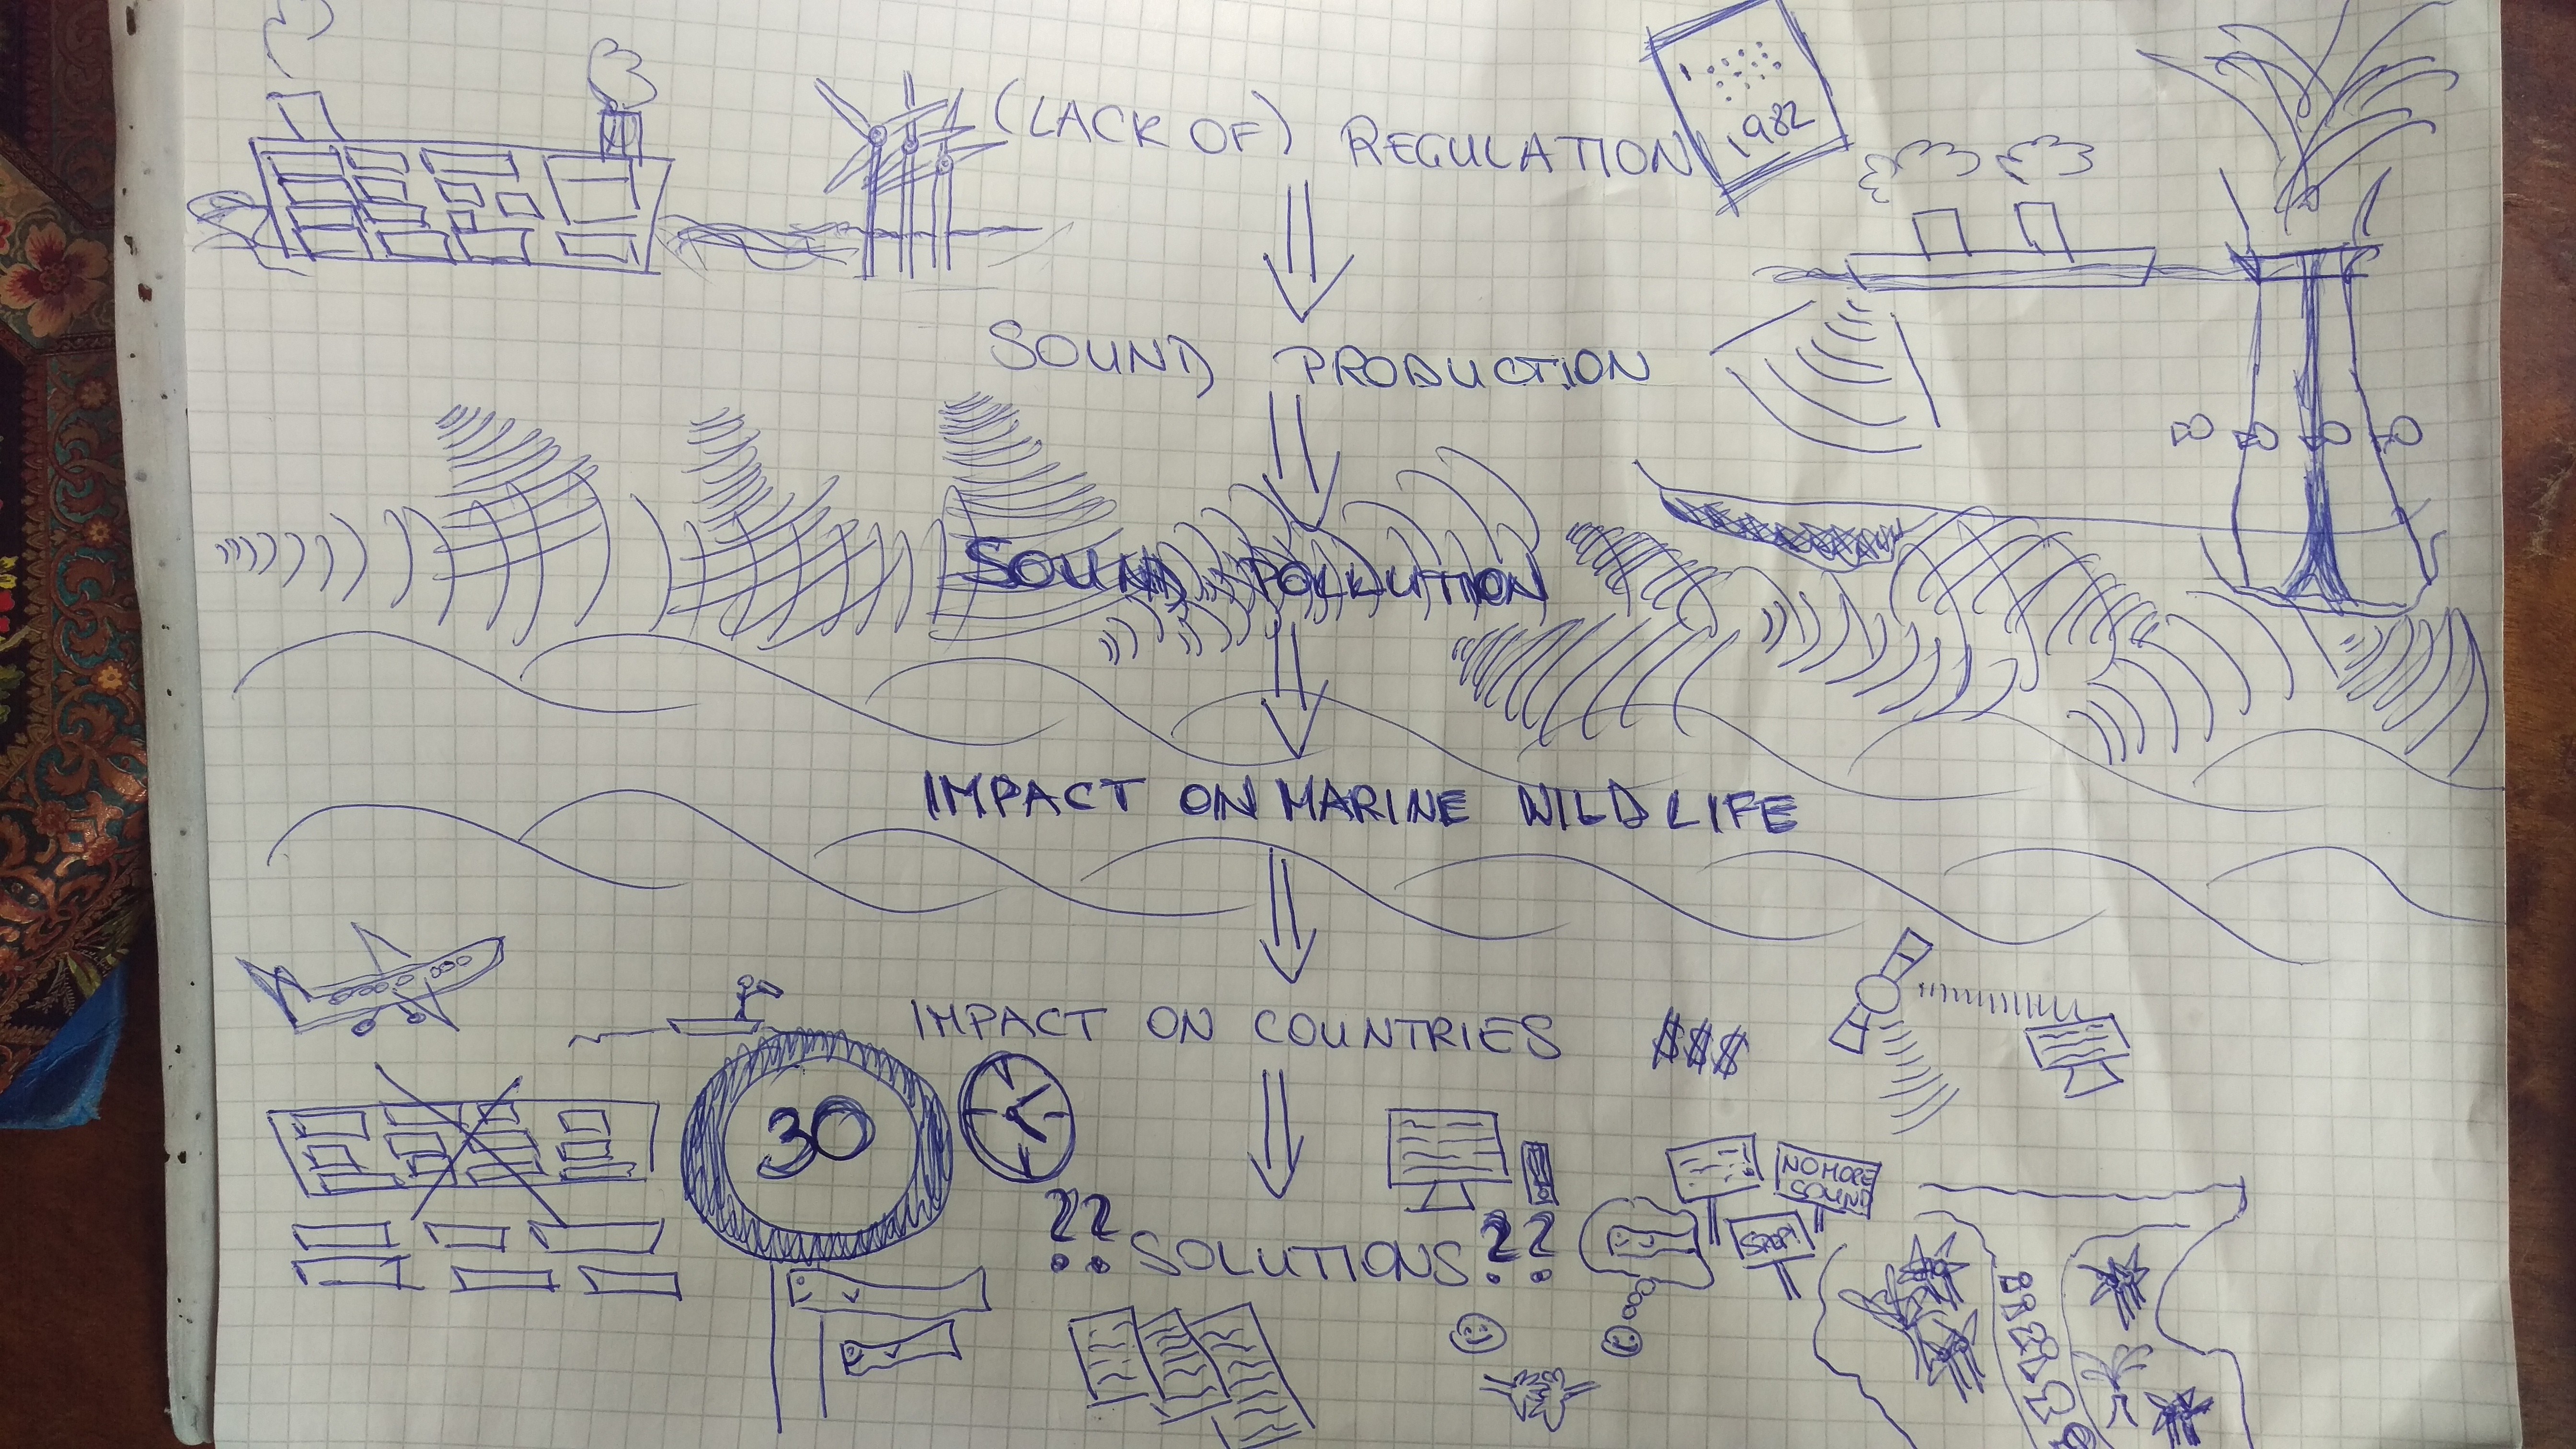 (LACK OF) REGULATION
1982
SOUND PRODUCTION
SOUND POLLUTION
IMPACT ON MARINE WILDLIFE
IMPACT ON COUNTRIES $$$
30
?? SOLUTIONS ??
NO MORE
SOUND
STOP!